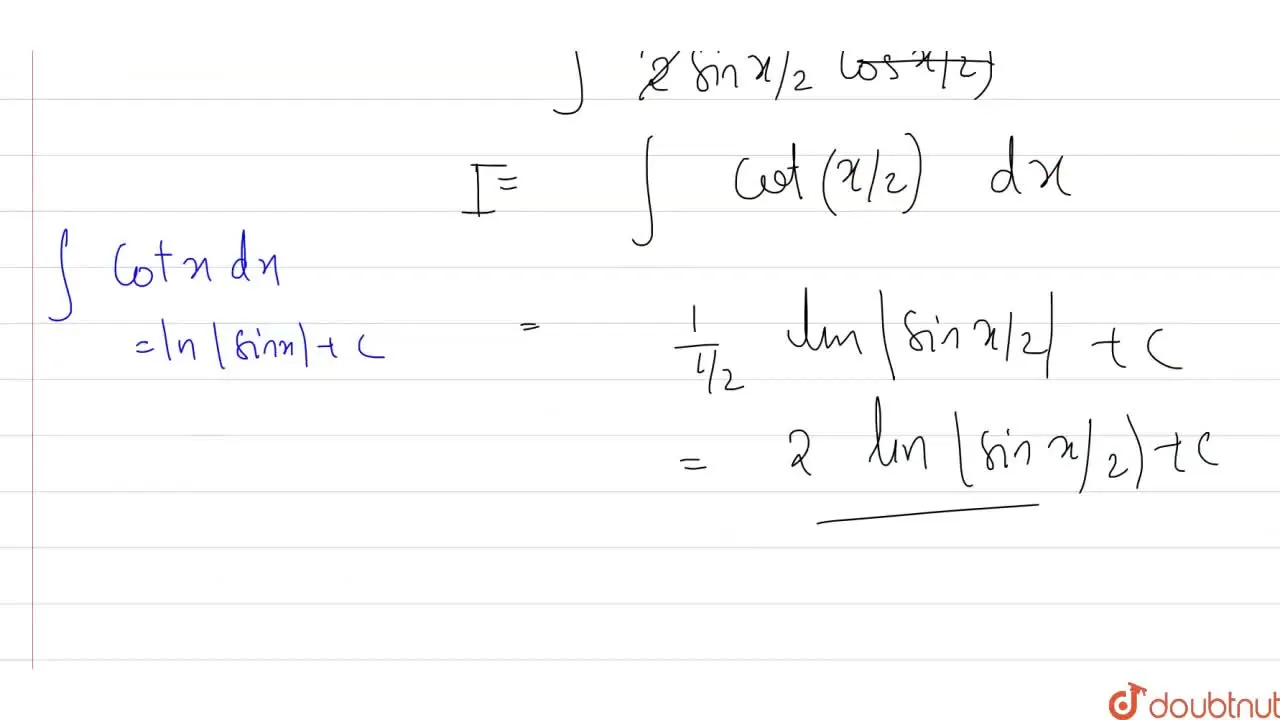 ∫ 2 sin x/2 cos x/2)
I = ∫ cot (x/2) dx
∫ cot x dx
= ln |sin x| + c
= 1/1/2 ln |sin x/2| + c
= 2 ln |sin x/2) + c
doubtnut